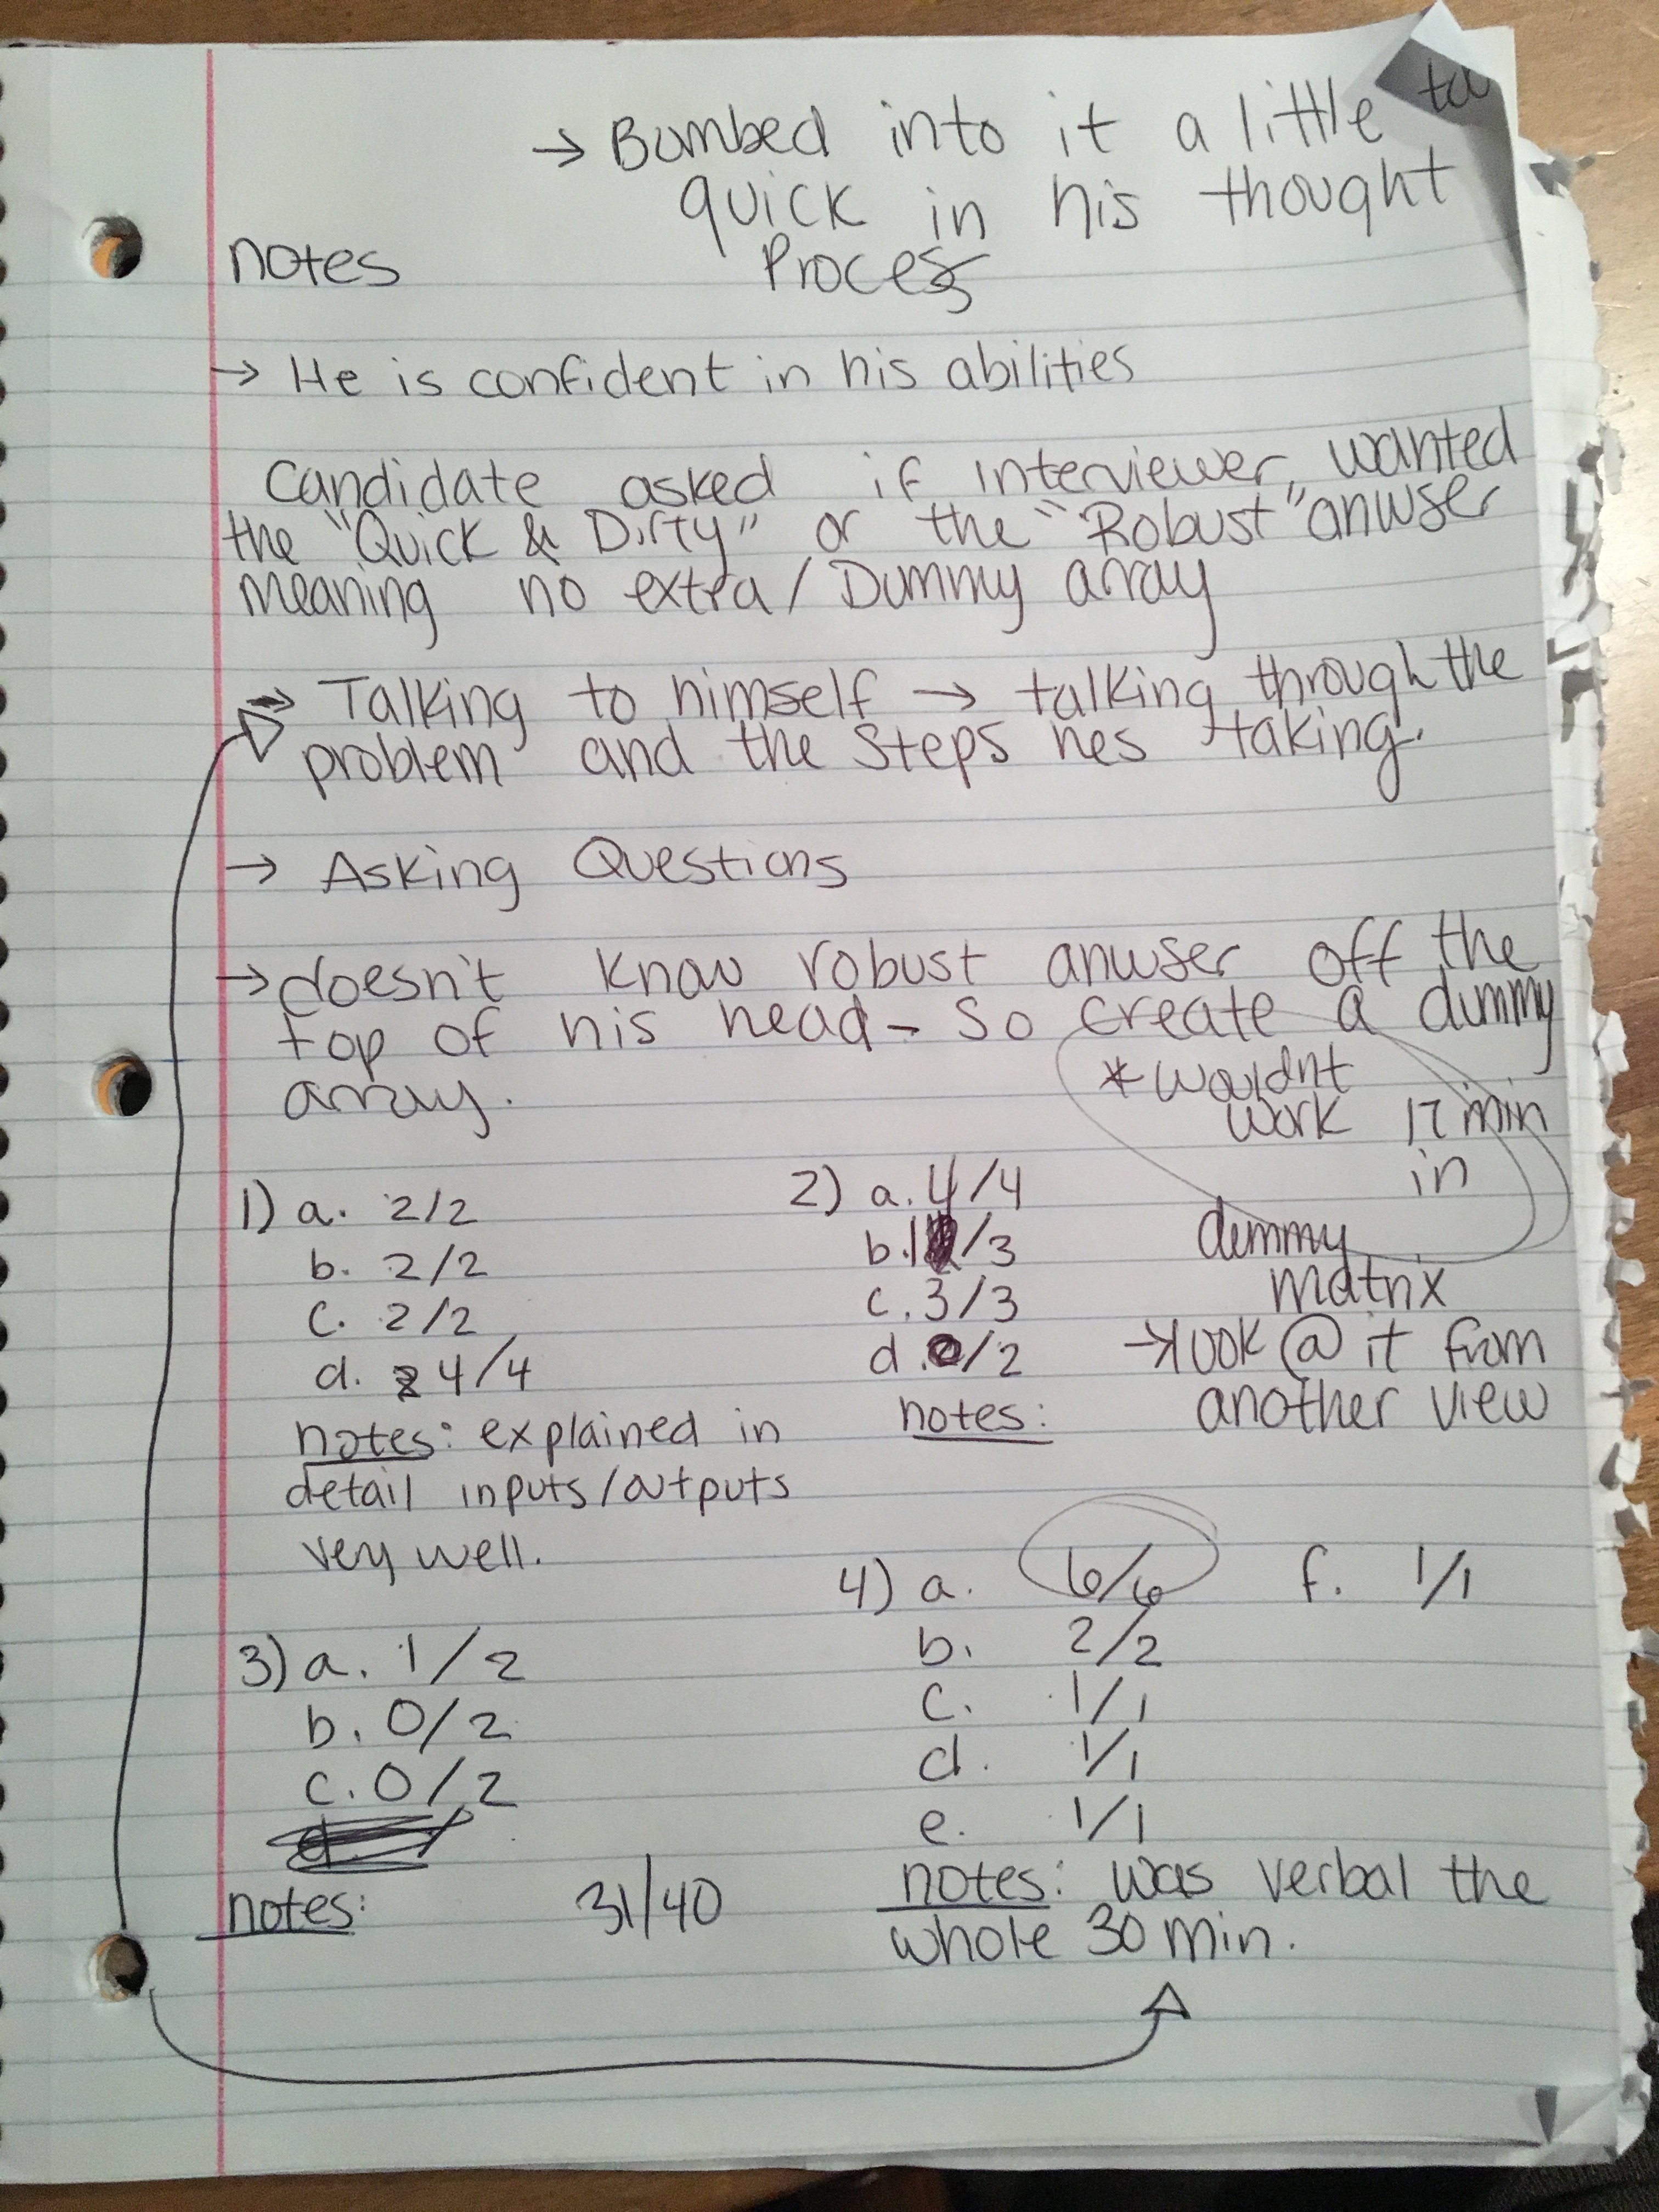 → Bombed into it a little to
quick in his thought
Process
notes
→ He is confident in his abilities
Candidate asked if interviewer wanted
the "Quick & Dirty" or the "Robust" anwser
meaning no extra / Dummy array
→ Talking to himself → talking through the
problem and the steps hes taking.
→ Asking Questions
→ doesn't know robust anwser off the
top of his head - so create a dummy
array.
* wouldnt
work 17 min
in
dummy
matrix
→ look @ it from
another view
1) a. 2/2
b. 2/2
c. 2/2
d. 4/4
notes: explained in
detail inputs/outputs
very well.
2) a. 4/4
b. 1/3
c. 3/3
d. /2
notes:
3) a. 1/2
b. 0/2
c. 0/2
notes:
31/40
4) a. 6/6
b. 2/2
c. 1/1
d. 1/1
e. 1/1
f. 1/1
notes: was verbal the
whole 30 min.